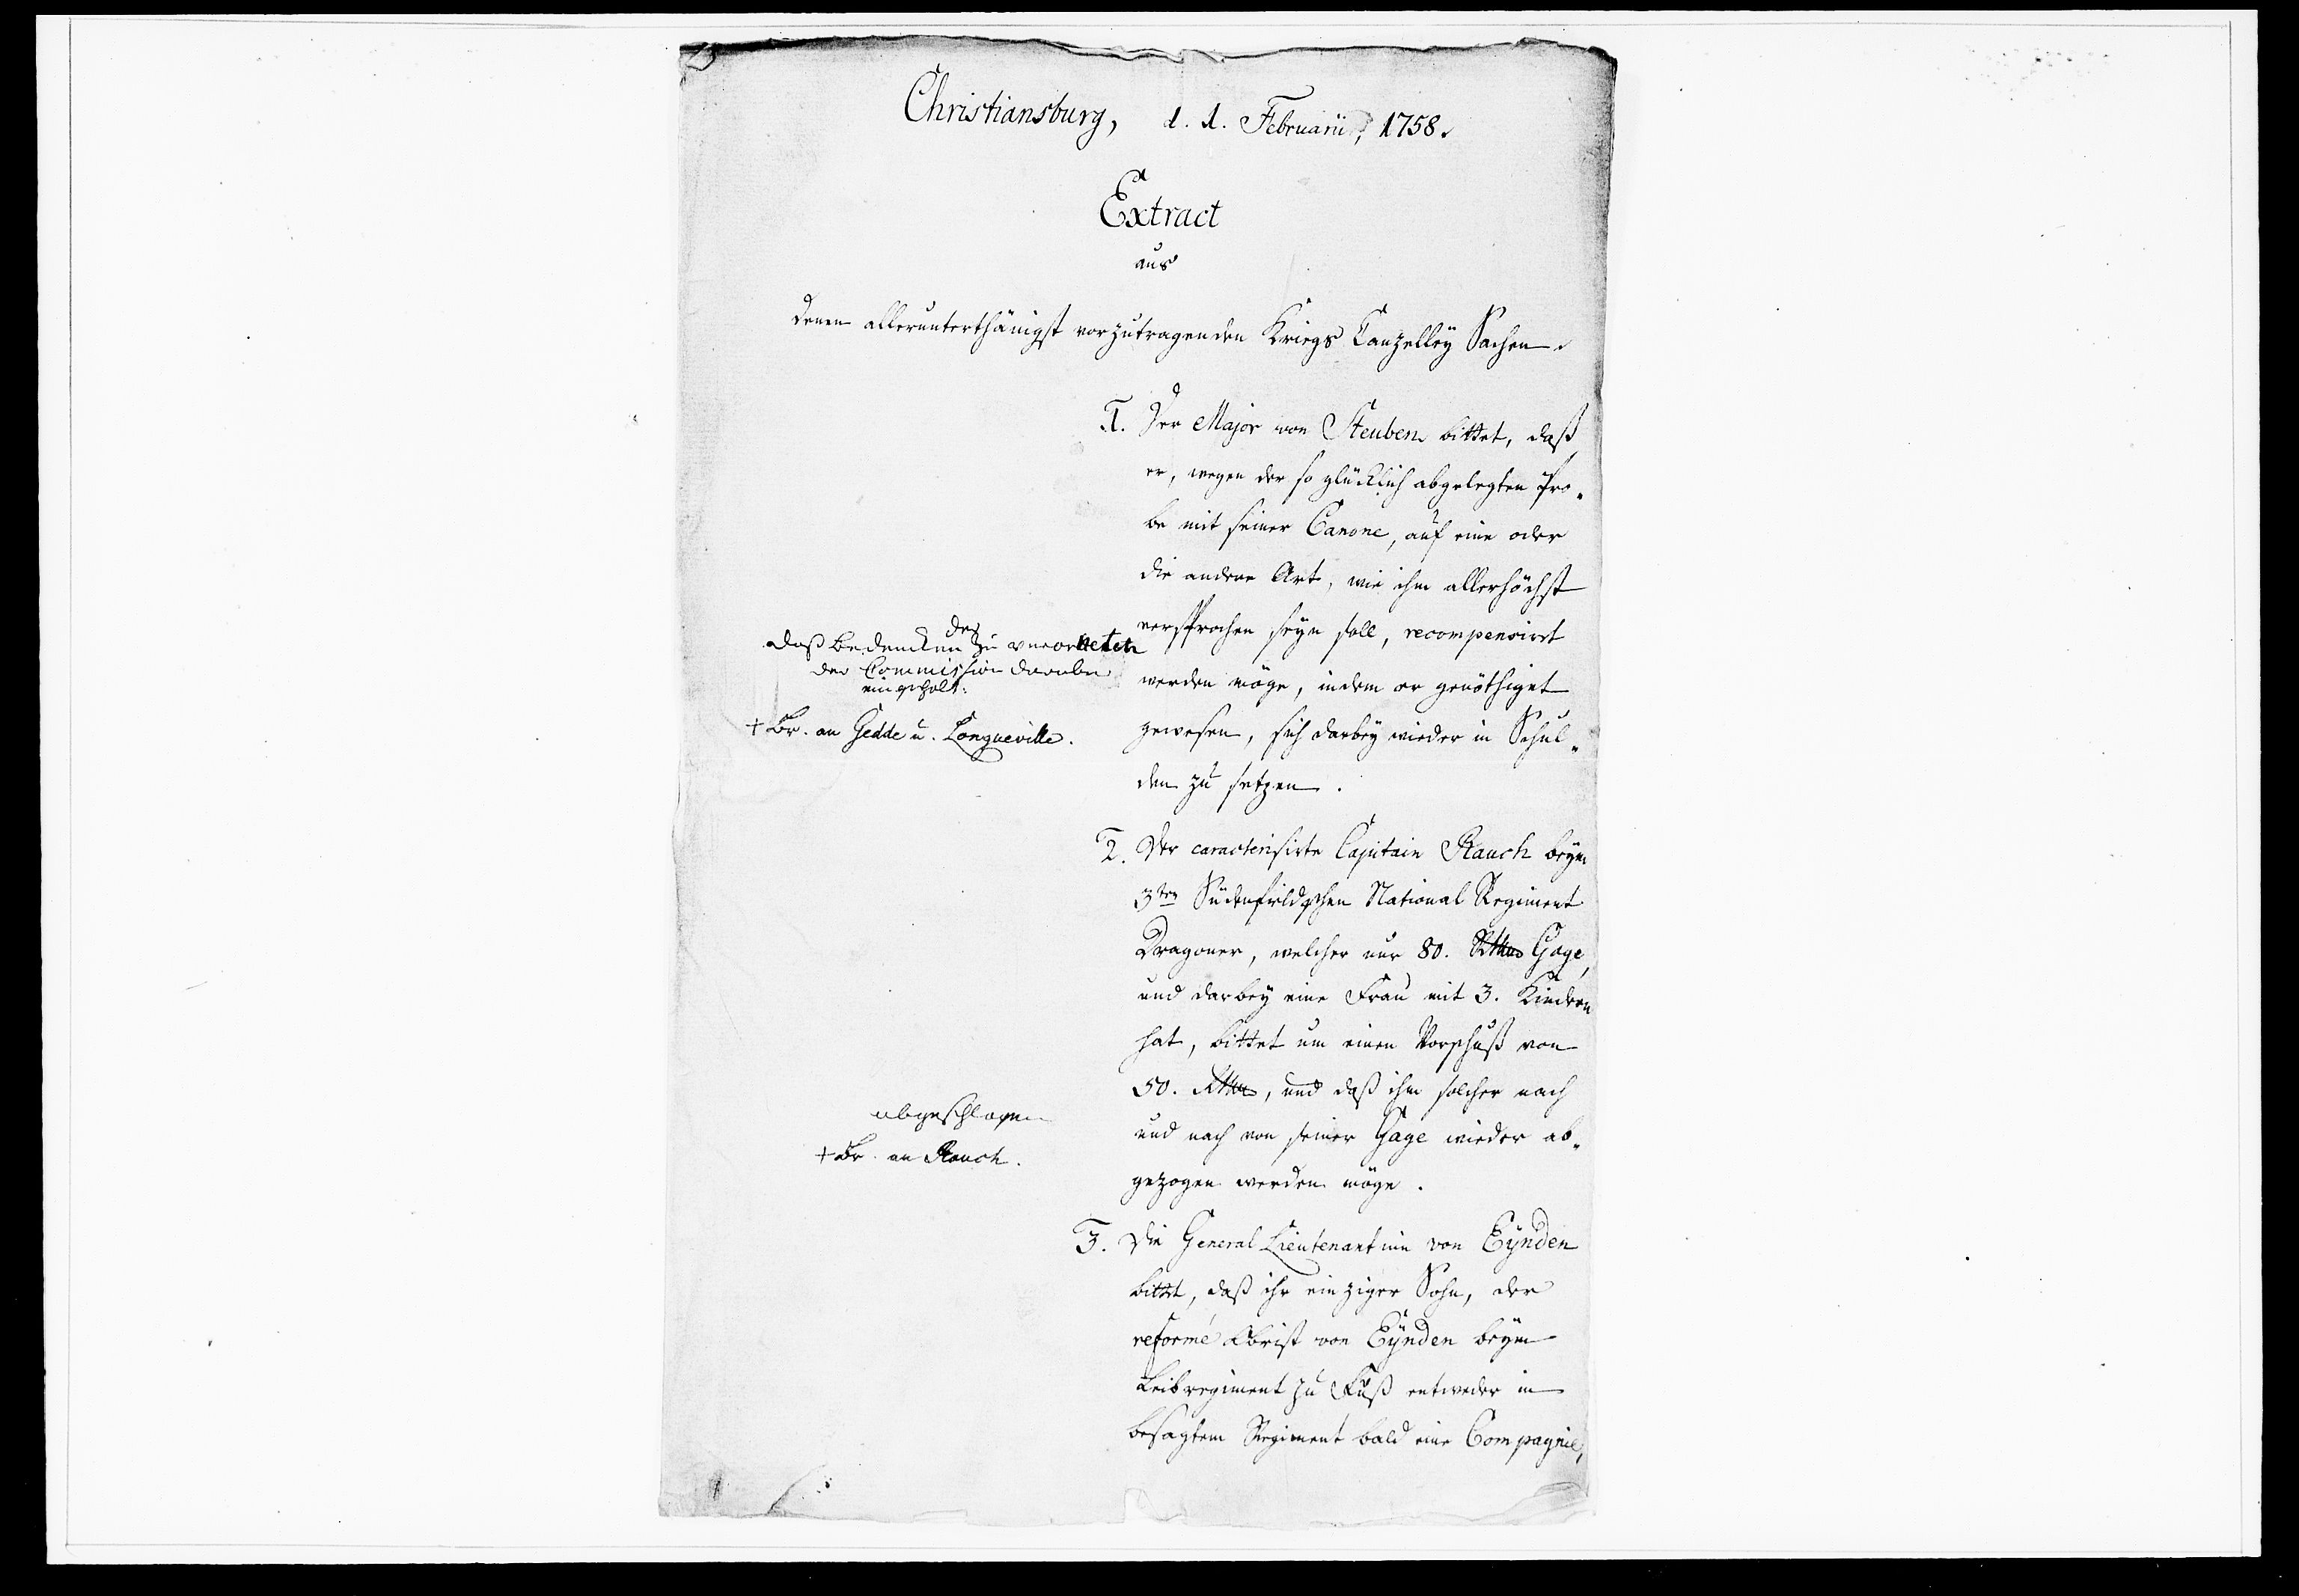 Christiansburg, d. 1. Februarii, 1758.
Extract
aus
denen allerunterthänigst vorzutragenden Kriegs Canzelley Sachen.
1. Der Major von Steuben bittet, daß
er, wegen der so glücklich abgelegten Pro-
be mit seiner Canone, auf eine oder
die andere Art, wie ihm allerhöchst
versprochen seyn soll, recompensirt
werden möge, indem er genöthiget
gewesen, sich darbey wieder in Schul-
den zu setzen.
daß Bedencken der zu
der Commission darüber
eingeholt:
+ Br. an Gedde u. Longueville.
2. Der caracterisirte Capitain Rauch beym
3ten Südenfieldschen National Regiment
Dragoner, welcher nur 80. Rthlr Gage,
und darbey eine Frau mit 3. Kindern
hat, bittet um einen Vorschuß von
50. Rthlr, und daß ihm solcher nach
und nach von seiner Gage wieder ab-
gezogen werden möge.
abgeschlagen
+ Br. an Rauch.
3. Die General Lieutenantinn von Eynden
bittet, daß ihr einziger Sohn, der
reformé Obrist von Eynden beym
Leibregiment zu Fuß entweder in
besagtem Regiment bald eine Compagnie,